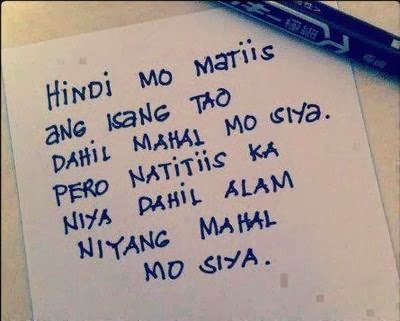 HINDI MO MATIIS
ANG ISANG TAO
DAHIL MAHAL MO SIYA.
PERO NATITIIS KA
NIYA DAHIL ALAM
NIYANG MAHAL
MO SIYA.